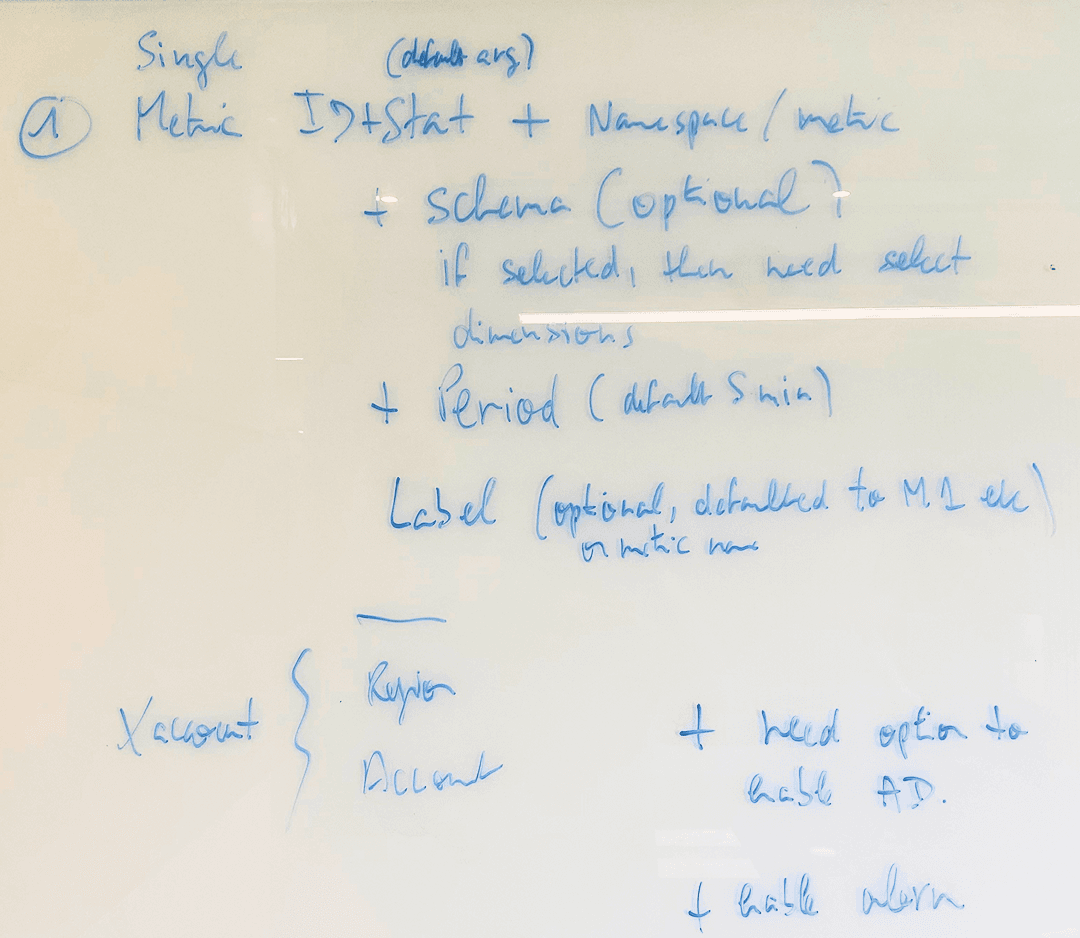 Single (default avg)
① Metric ID+Stat + Namespace/metric
+ schema (optional)
if selected, then need select
dimensions
+ Period (default 5 min)
Label (optional, defaulted to M1 etc)
or metric name
Region
Xaccount { 
Account
+ need option to
enable AD.
+ enable alarm